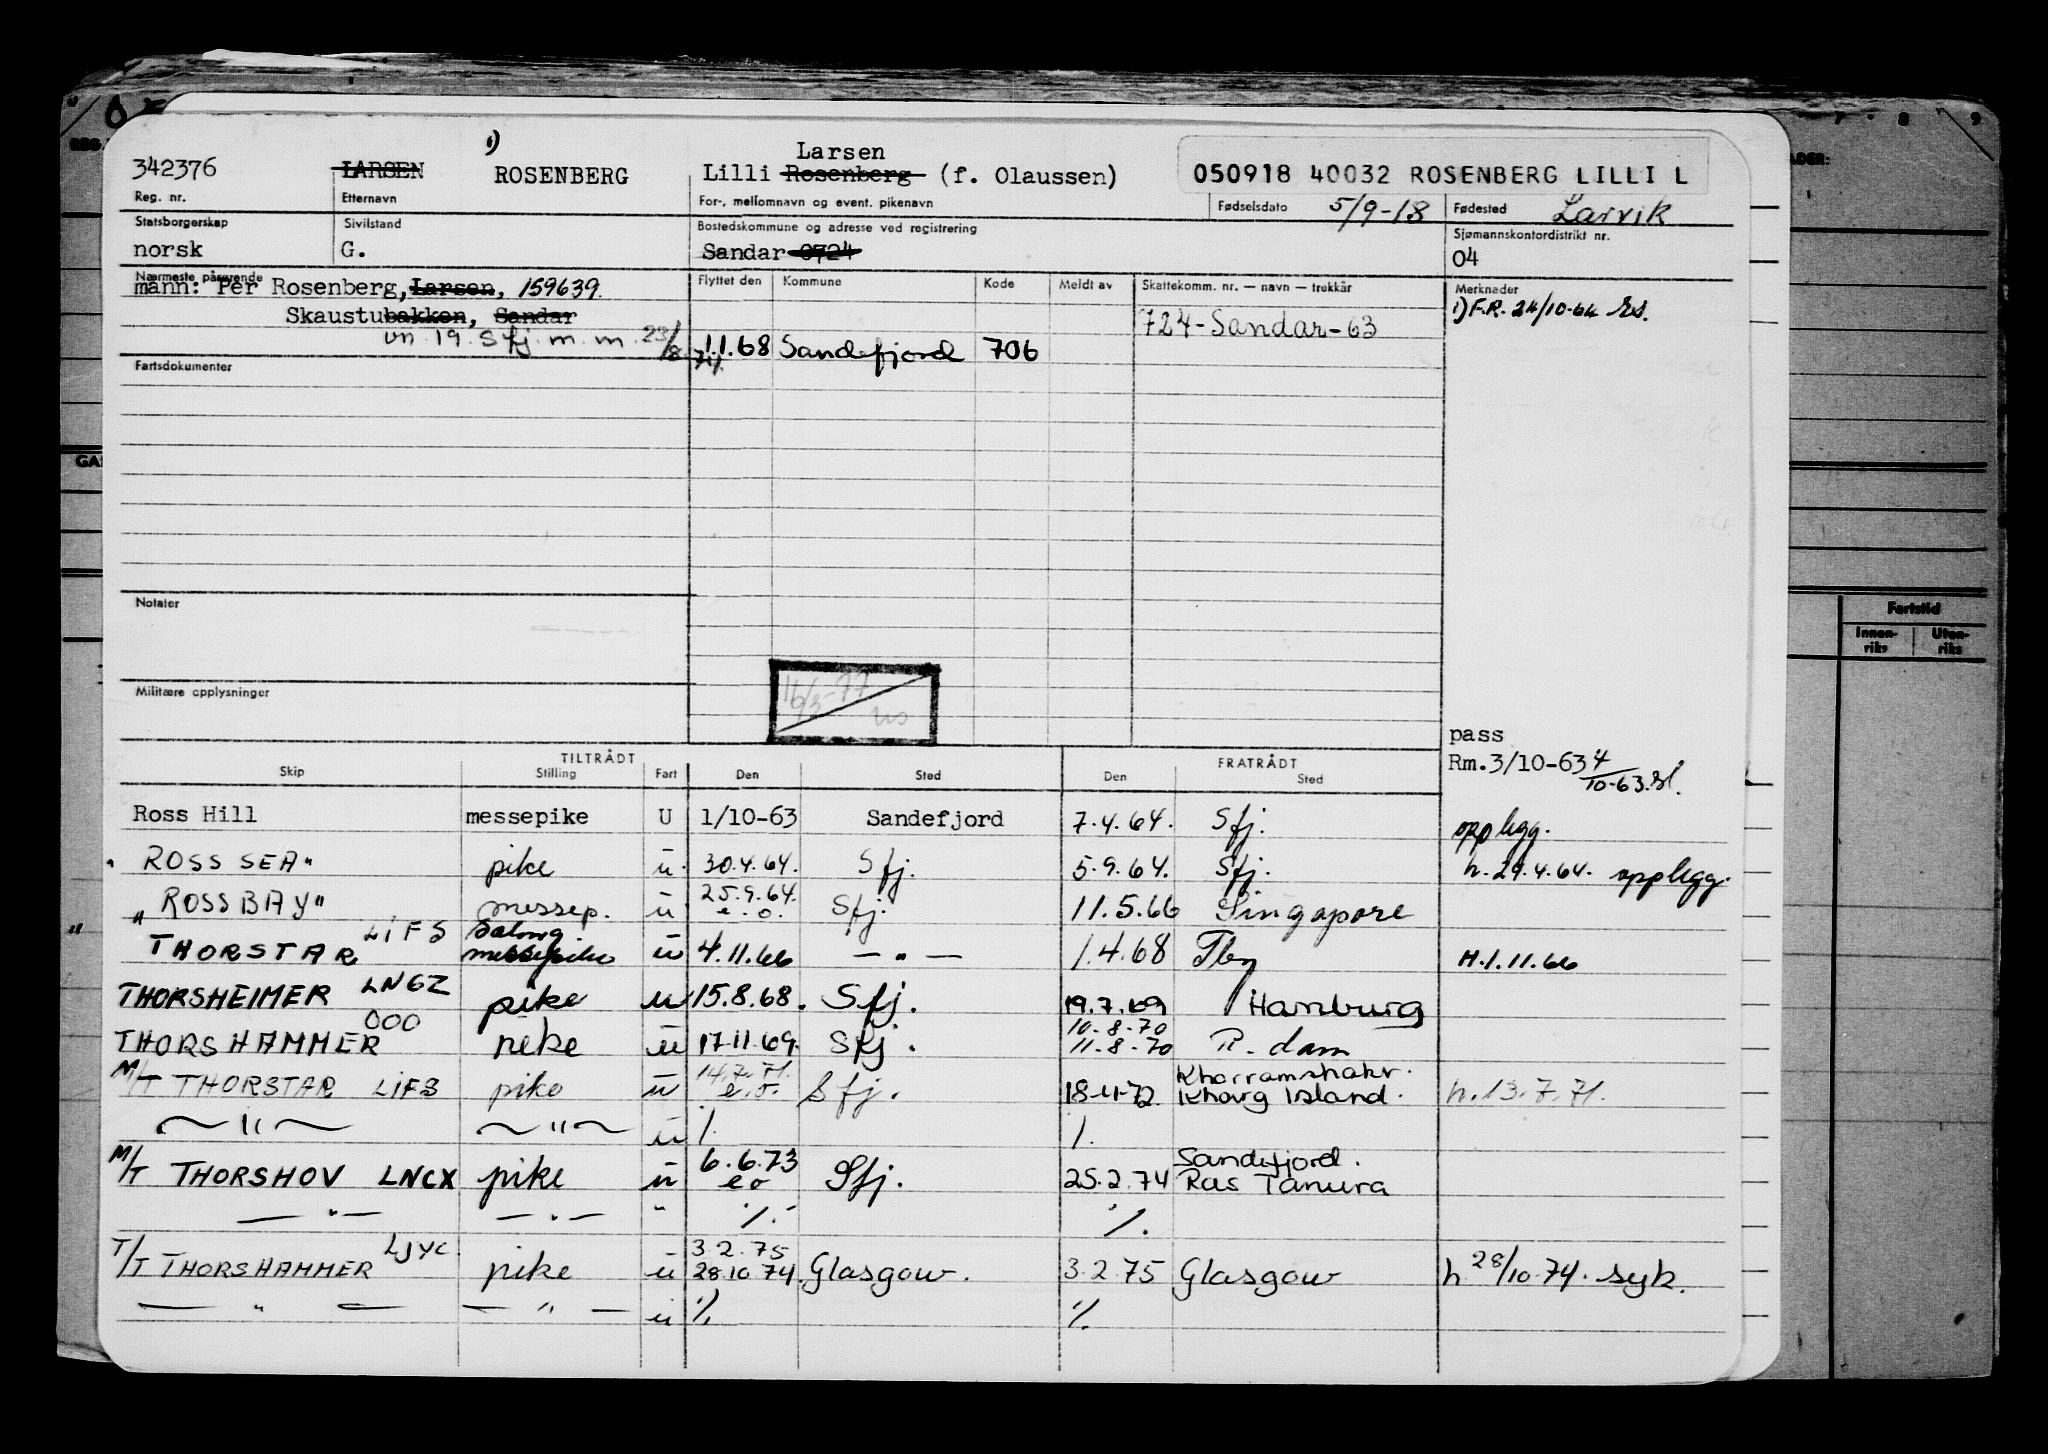 1)
Larsen
342376 LARSEN ROSENBERG Lilli Rosenberg (f. Olaussen) 050918 40032 ROSENBERG LILLI L
Reg. nr. Etternavn For-, mellomnavn og event. pikenavn Fødselsdato 5/9-18 Fødested Larvik
Statsborgerskap Sivilstand Bostedskommune og adresse ved registrering Sjømannskontordistrikt nr.
norsk G. Sandar 0724 04
Nærmeste pårørende Flyttet den Kommune Kode Meldt av Skattekomm. nr. — navn — trekkår Merknader
mann: Per Rosenberg, Larsen, 159639. 1) F.R. 24/10-64
Skaustubakken, Sandar 724-Sandar-63
un. 19. Sfj. m. m. 23/8 1.1.68 Sandefjord 706
Fartsdokumenter
Notater
Militære opplysninger
16/3-77
pass
TILTRÅDT FRATRÅDT Rm.3/10-63 4/10-63
Skip Stilling Fart Den Sted Den Sted
Ross Hill messepike U 1/10-63 Sandefjord 7.4.64. Sfj. opplegg.
"ROSS SEA" pike u. 30.4.64. Sfj. 5.9.64. Sfj. h. 29.4.64. opplegg.
"ROSS BAY" messep. u 25.9.64. e.o. Sfj. 11.5.66 Singapore
THORSTAR LIFS Salong messepike u 4.11.66 — " — 1.4.68 Tbg H.1.11.66
THORSHEIMER LNGZ pike u 15.8.68. Sfj. 19.7.69 Hamburg
THORSHAMMER OOO pike u 17.11.69. Sfj. 10.8.70 11.8.70 R.dam
M/T THORSTAR LIFS pike u 14.7.71. e.o. Sfj. 18.4.72 Khorramshahr. Kharg Island. h. 13.7.71.
— " — — " — u /. /.
M/T THORSHOV LNCX pike u 6.6.73 e.o Sfj. 25.2.74 Sandefjord. Ras Tanura
— " — — " — " /. /.
T/T THORSHAMMER LJYC pike u 3.2.75 28.10.74. Glasgow. 3.2.75 Glasgow h 28/10.74. syk.
— " — — " — u /. /.
GA
Fartstid
Innen-riks Uten-riks